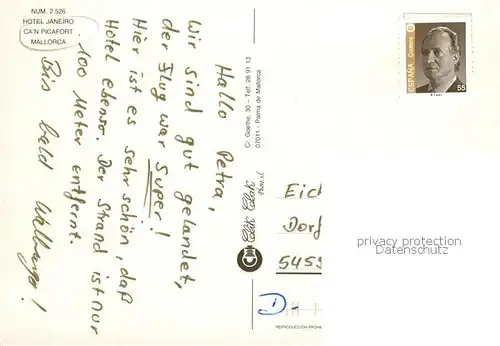 NUM. 2.526
HOTEL JANEIRO
CA'N PICAFORT
MALLORCA
Hallo Petra,
Wir sind gut gelandet,
der Flug war super!
Hier ist es sehr schön, daß
Hotel ebenso. Der Strand ist nur
100 Meter entfernt.
Bis bald
C/. Goethe, 30 – Telf. 28 91 13
07011 - Palma de Mallorca
Click Clak
Phois.l.
ESPAÑA
Correos
55
Eich
Dorf
5455
D-
privacy protection
Datenschutz
REPRODUCCION PROHIB